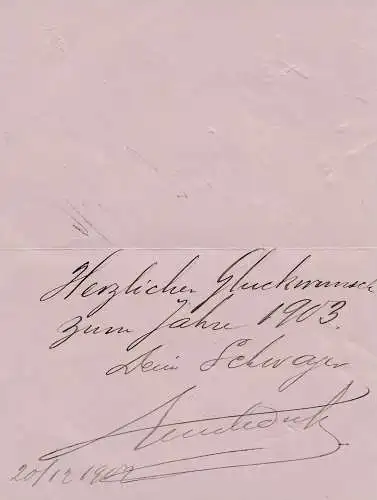 Herzlichen Glückwunsch
zum Jahre 1903.
Dein Schwager
20/12 1902